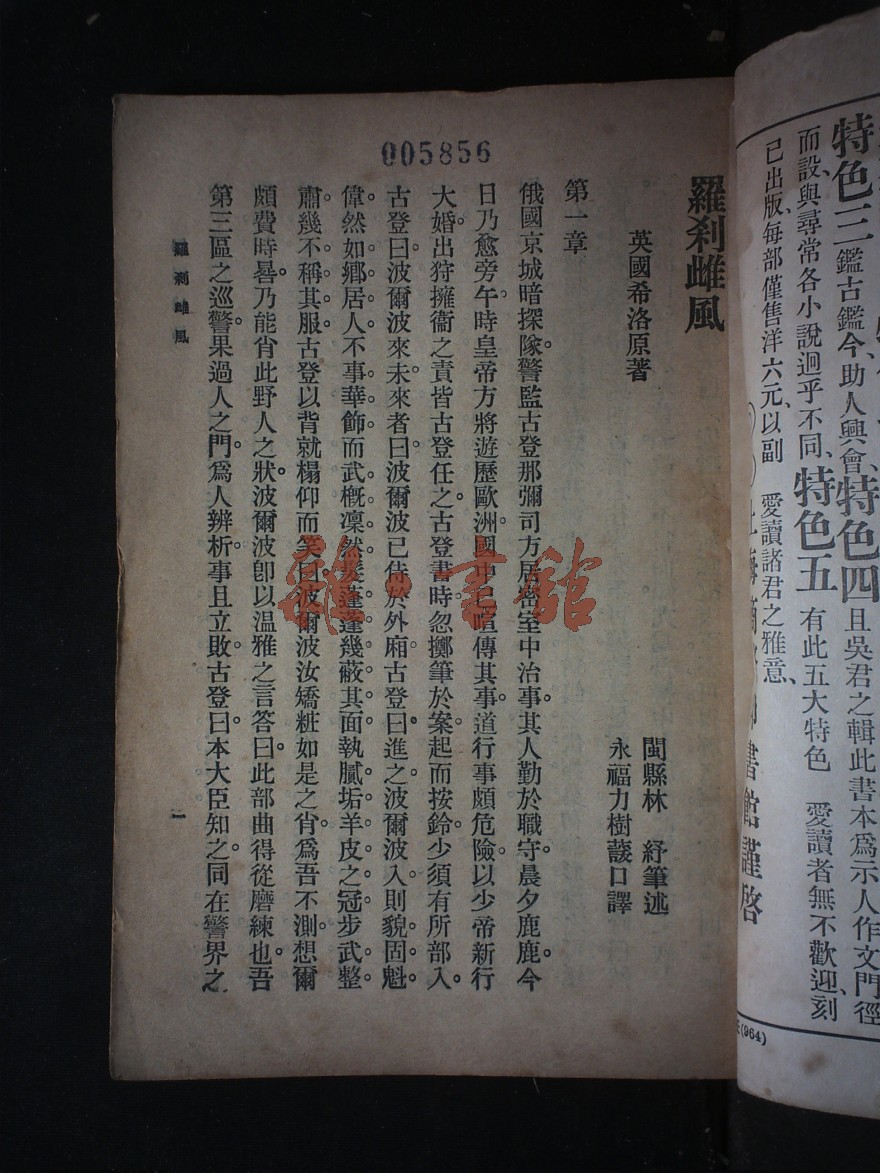 特色三 鑑古鑑今、助人興會、特色四 且吳君之輯此書本爲示人作文門徑
而設、與尋常各小說迥乎不同、特色五 有此五大特色 愛讀者無不歡迎、刻
已出版、每部僅售洋六元、以副 愛讀諸君之雅意、
書館謹啓
(964)
005856
羅刹雌風
英國希洛原著
閩縣林 紓筆述
永福力樹萲口譯
第一章
俄國京城暗探隊警監古登那彌司方居密室中治事。其人勤於職守。晨夕鹿鹿。今
日乃愈旁午。時皇帝方將遊歷歐洲。國中已喧傳其事。道行事頗危險。以少帝新行
大婚。出狩擁衞之責皆古登任之。古登書時忽擲筆於案。起而按鈴。少須有所部入。
古登曰。波爾波來未。來者曰。波爾波已侍於外廂。古登曰。進之。波爾波入。則貌固魁
偉。然如鄉居人。不事華飾。而武概凜然。髮蓬蓬幾蔽其面。執膩垢羊皮之冠。步武整
肅。幾不稱其服。古登以背就榻。仰而笑曰。波爾波。汝矯粧如是之肖。爲吾不測。想爾
頗費時晷。乃能肖此野人之狀。波爾波卽以溫雅之言答曰。此部曲得從磨練也。吾
第三區之巡警。果過人之門。爲人辨析。事且立敗。古登曰。本大臣知之。同在警界之
羅刹雌風
一